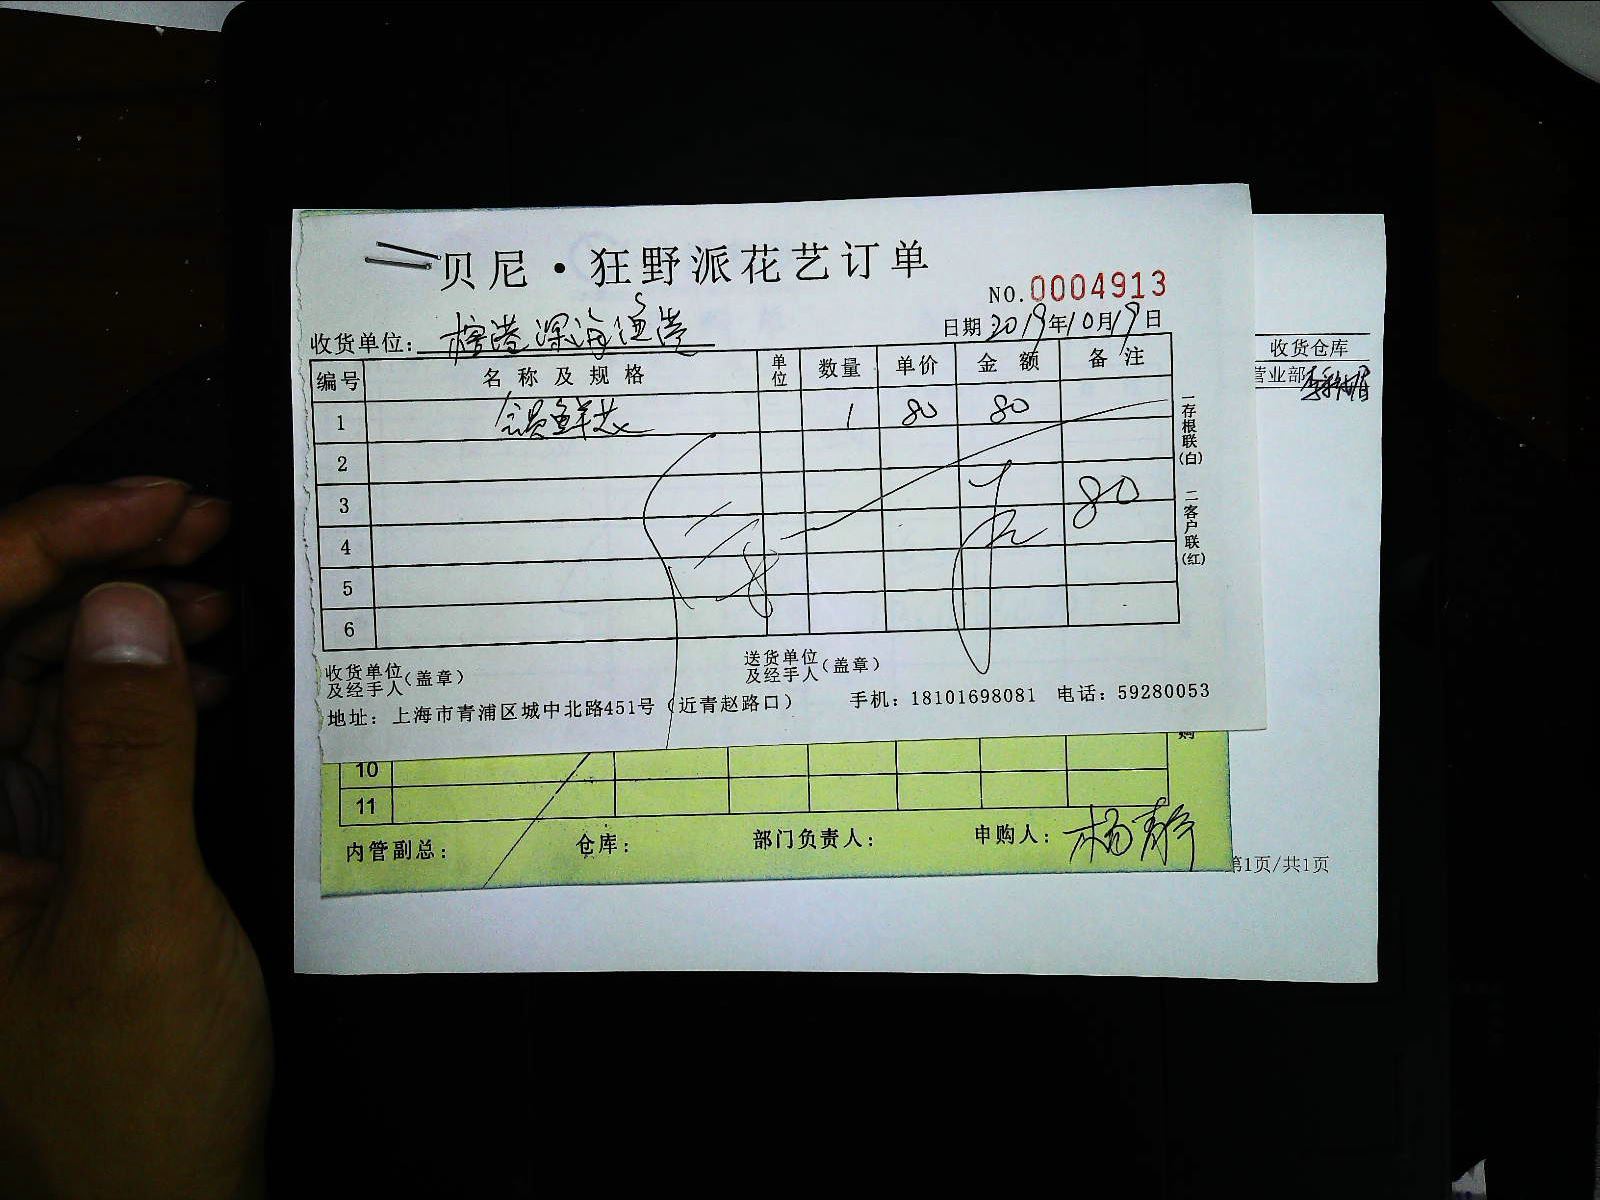 贝尼·狂野派花艺订单
NO.0004913
收货单位: 深海渔港
日期 2019年10月19日
编号 名称及规格 单位 数量 单价 金额 备注
1 鲜花 1 80 80
2
3 80
4
5
6
一存根联(白) 二客户联(红)
收货单位及经手人(盖章) 送货单位及经手人(盖章)
地址: 上海市青浦区城中北路451号(近青赵路口) 手机: 18101698081 电话: 59280053
收货仓库
营业部
10
11
购
内管副总: 仓库: 部门负责人: 申购人: 杨静
第1页/共1页